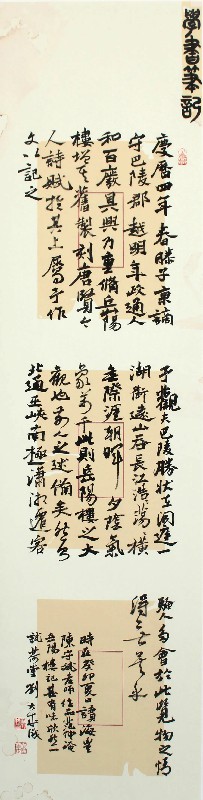 學書筆記
慶曆四年春滕子京謫
守巴陵郡越明年政通人
和百廢具興乃重脩岳陽
樓增其舊製刻唐賢今
人詩賦於其上屬予作
文以記之
予觀夫巴陵勝狀在洞庭一
湖銜遠山吞長江浩蕩橫
無際涯朝暉夕陰氣
象萬千此則岳陽樓之大
觀也前人之述備矣然則
北通巫峽南極瀟湘遷客
騷人多會於此覽物之情
得無異乎
時在癸卯夏日讀海
陳守老師作品
岳陽樓記甚有
堂劉大